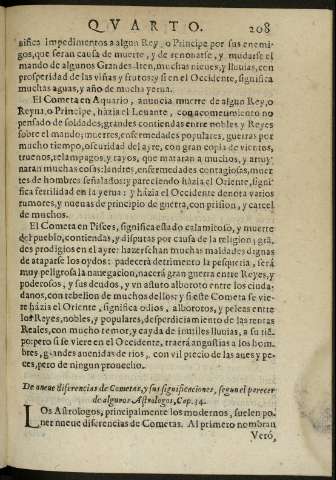 QVARTO. 208
nifica impedimentos a algun Rey, o Principe por sus enemi-
gos, que seran causa de muerte, y de enojarse, y mudarse el
mando de algunos Grandes. Iten, muchas nieues, y lluuias, con
prosperidad de las viñas y frutos; y si en el Occidente, significa
muchas aguas, y año de mucha yerua.
El Cometa en Aquario, anuncia muerte de algun Rey, o
Reyna, o Principe, hàzia el Leuante, con acometimiento no
pensado de soldados, grandes contiendas entre nobles y Reyes
sobre el mando; muertes, enfermedades populares, guerras por
mucho tiempo, oscuridad del ayre, con gran copia de vientos,
truenos, relampagos, y rayos, que mataràn a muchos, y arruy-
naràn muchas cosas: landres, enfermedades contagiosas, muer
tes de hombres señalados: y pareciendo hàzia el Oriente, signi-
fica fertilidad en la yerua: y hàzia el Occidente denota varios
rumores, y nueuas de principio de guerra, con prision, y carcel
de muchos.
El Cometa en Pisces, significa estado calamitoso, y muerte
del pueblo, contiendas, y disputas por causa de la religion; gra
des prodigios en el ayre: hazerse han muchas maldades dignas
de ataparse los oydos: padecerà detrimento la pesqueria, serà
muy peligrosa la nauegacion, nacerà gran guerra entre Reyes, y
poderosos, y sus deudos, y vn astuto alboroto entre los ciuda-
danos, con rebelion de muchos dellos: y si este Cometa se vie-
re hàzia el Oriente, significa odios, alborotos, y peleas entre
los Reyes, nobles, y populares, desperdiciamiento de las rentas
Reales, con mucho temor, y cayda de inutiles lluuias, a su tië-
po: pero si se viere en el Occidente, traerà angustias a los hom-
bres, grandes auenidas de rios, con vil precio de las aues y pe-
ces, pero de ningun prouecho.
De nueue diferencias de Cometas, y sus significaciones, segun el parecer
de algunos Astrologos, Cap. 14.
LOs Astrologos, principalmente los modernos, suelen po-
ner nueue diferencias de Cometas. Al primero nombran
Verù,